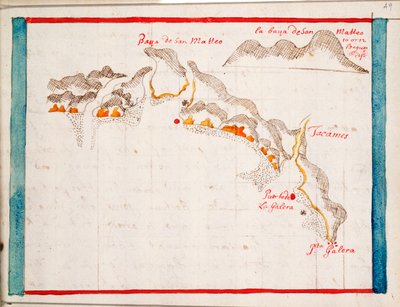 49
Baya de San Matteo
la baya de San Matteo
Tacames
La Galera
Pta Galera